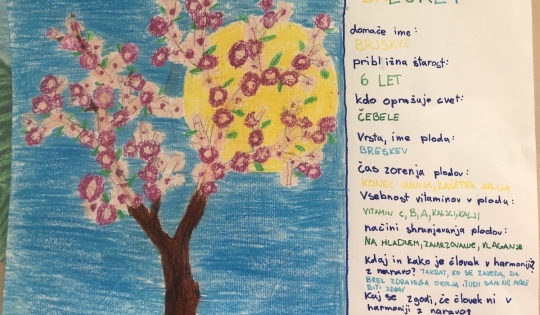 domače ime:
BRJSKVE
približna starost:
6 LET
kdo oprašuje cvet:
ČEBELE
Vrsta, ime ploda:
BRESKEV
čas zorenja plodov:
KONEC JUNIJA, ZAČETEK JULIJA
Vsebnost vitaminov v plodu:
VITAMIN C, B, A, KALCIJ, KALIJ
načini shranjevanja plodov:
NA HLADNEM, ZAMRZOVANJE, VLAGANJE
kdaj in kako je človek v harmoniji
z naravo? TAKRAT, KO SE ZAVEDA, DA
BREZ ZDRAVEGA OKOLJA TUDI SAM NE MORE
BITI ZDRAV
Kaj se zgodi, če človek ni v
harmoniji z naravo?